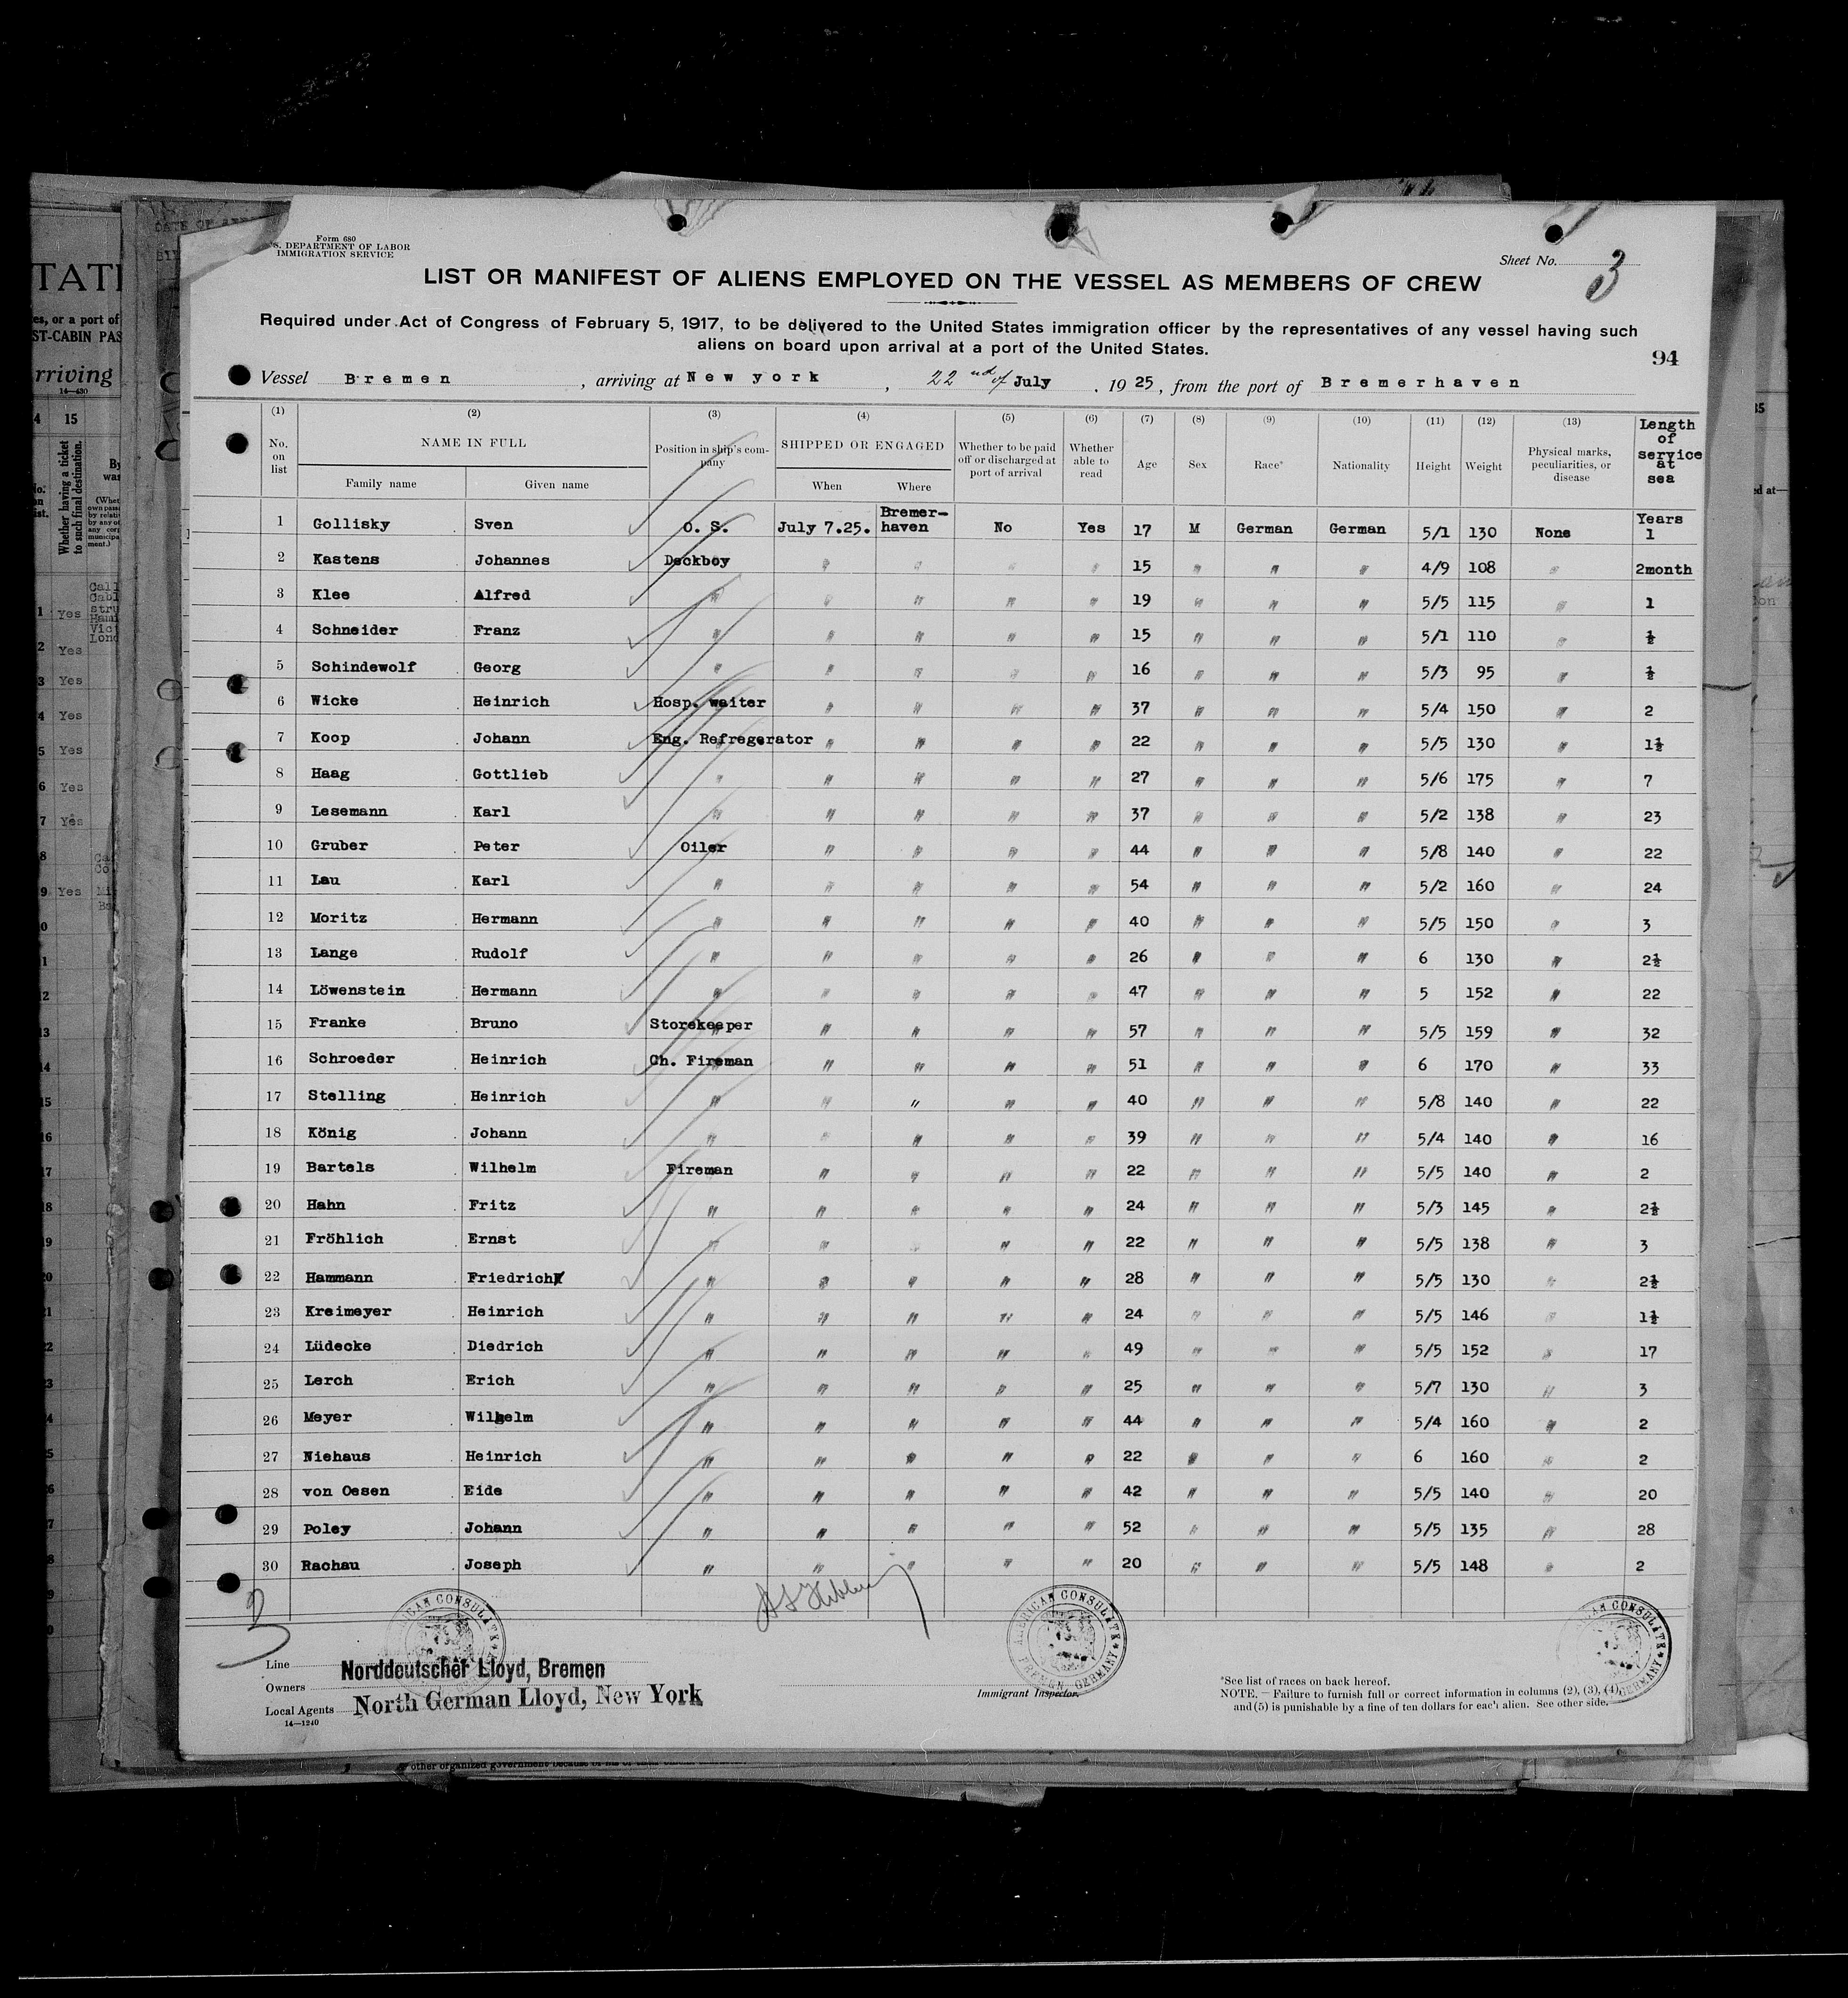 Form 680
S. DEPARTMENT OF LABOR
IMMIGRATION SERVICE
Sheet No. 3
LIST OR MANIFEST OF ALIENS EMPLOYED ON THE VESSEL AS MEMBERS OF CREW
Required under Act of Congress of February 5, 1917, to be delivered to the United States immigration officer by the representatives of any vessel having such
aliens on board upon arrival at a port of the United States.
94
Vessel Bremen, arriving at New york, 22 nd of July, 1925, from the port of Bremerhaven
(1) (2) (3) (4) (5) (6) (7) (8) (9) (10) (11) (12) (13)
No. on list NAME IN FULL Family name Given name Position in ship's company SHIPPED OR ENGAGED When Where Whether to be paid off or discharged at port of arrival Whether able to read Age Sex Race* Nationality Height Weight Physical marks, peculiarities, or disease Length of service at sea
1 Gollisky Sven O. S. July 7.25. Bremer-haven No Yes 17 M German German 5/1 130 None Years 1
2 Kastens Johannes Deckboy " " " " 15 " " " 4/9 108 " 2month
3 Klee Alfred " " " " " 19 " " " 5/5 115 " 1
4 Schneider Franz " " " " " 15 " " " 5/1 110 " ½
5 Schindewolf Georg " " " " " 16 " " " 5/3 95 " ½
6 Wicke Heinrich Hosp. waiter " " " " 37 " " " 5/4 150 " 2
7 Koop Johann Eng. Refregerator " " " " 22 " " " 5/5 130 " 1½
8 Haag Gottlieb " " " " " 27 " " " 5/6 175 " 7
9 Lesemann Karl " " " " " 37 " " " 5/2 138 " 23
10 Gruber Peter Oiler " " " " 44 " " " 5/8 140 " 22
11 Lau Karl " " " " " 54 " " " 5/2 160 " 24
12 Moritz Hermann " " " " " 40 " " " 5/5 150 " 3
13 Lange Rudolf " " " " " 26 " " " 6 130 " 2½
14 Löwenstein Hermann " " " " " 47 " " " 5 152 " 22
15 Franke Bruno Storekeeper " " " " 57 " " " 5/5 159 " 32
16 Schroeder Heinrich Ch. Fireman " " " " 51 " " " 6 170 " 33
17 Stelling Heinrich " " " " " 40 " " " 5/8 140 " 22
18 König Johann " " " " " 39 " " " 5/4 140 " 16
19 Bartels Wilhelm Fireman " " " " 22 " " " 5/5 140 " 2
20 Hahn Fritz " " " " " 24 " " " 5/3 145 " 2½
21 Fröhlich Ernst " " " " " 22 " " " 5/5 138 " 3
22 Hammann Friedrich " " " " " 28 " " " 5/5 130 " 2½
23 Kreimeyer Heinrich " " " " " 24 " " " 5/5 146 " 1½
24 Lüdecke Diedrich " " " " " 49 " " " 5/5 152 " 17
25 Lerch Erich " " " " " 25 " " " 5/7 130 " 3
26 Meyer Wilhelm " " " " " 44 " " " 5/4 160 " 2
27 Niehaus Heinrich " " " " " 22 " " " 6 160 " 2
28 von Oesen Eide " " " " " 42 " " " 5/5 140 " 20
29 Poley Johann " " " " " 52 " " " 5/5 135 " 28
30 Rachau Joseph " " " " " 20 " " " 5/5 148 " 2
3
AMERICAN CONSULATE BREMEN, GERMANY
Line
Norddeutscher Lloyd, Bremen
Owners
North German Lloyd, New York
Local Agents
14—1240
Immigrant Inspector.
*See list of races on back hereof.
NOTE.— Failure to furnish full or correct information in columns (2), (3), (4),
and (5) is punishable by a fine of ten dollars for each alien. See other side.